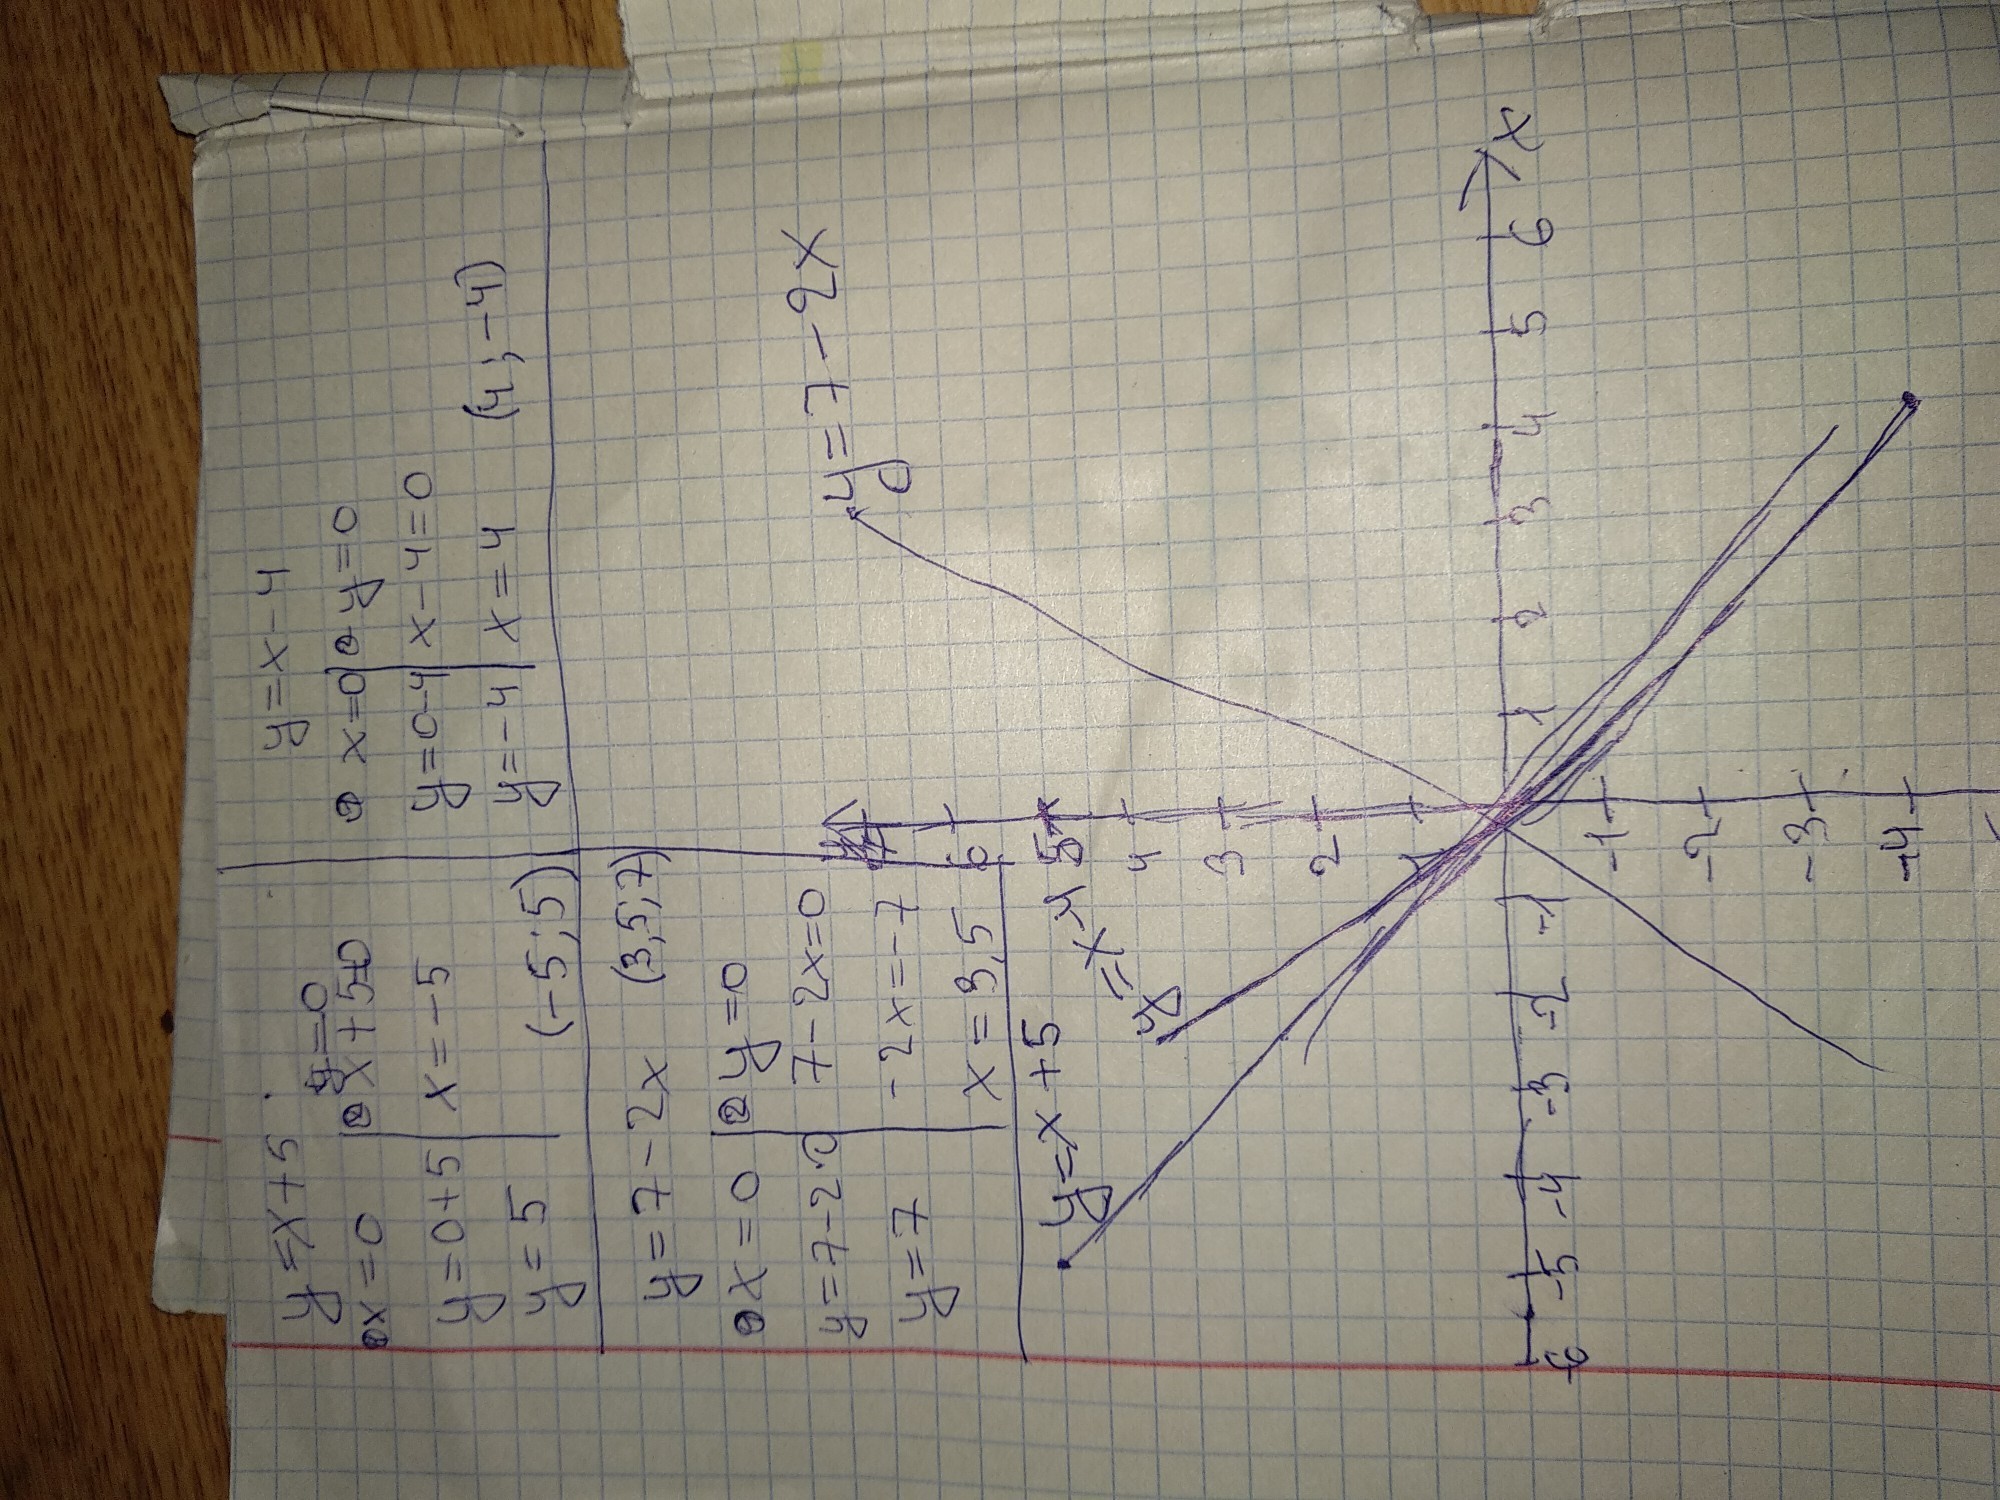 y=x+5
① x=0 ② y=0
x+5=0
y=0+5 x=-5
y=5 (-5;5)
y=x-4
① x=0 ② y=0
y=0-4 x-4=0
y=-4 x=4 (4;-4)
y=7-2x (3,5;7)
① x=0 ② y=0
y=7-2·0 7-2x=0
y=7 -2x=-7
x=3,5
y=x+5
y=x-4
y=7-2x
7
6
5
4
3
2
1
-6 -5 -4 -3 -2 -1 1 2 3 4 5 6 x
-1
-2
-3
-4